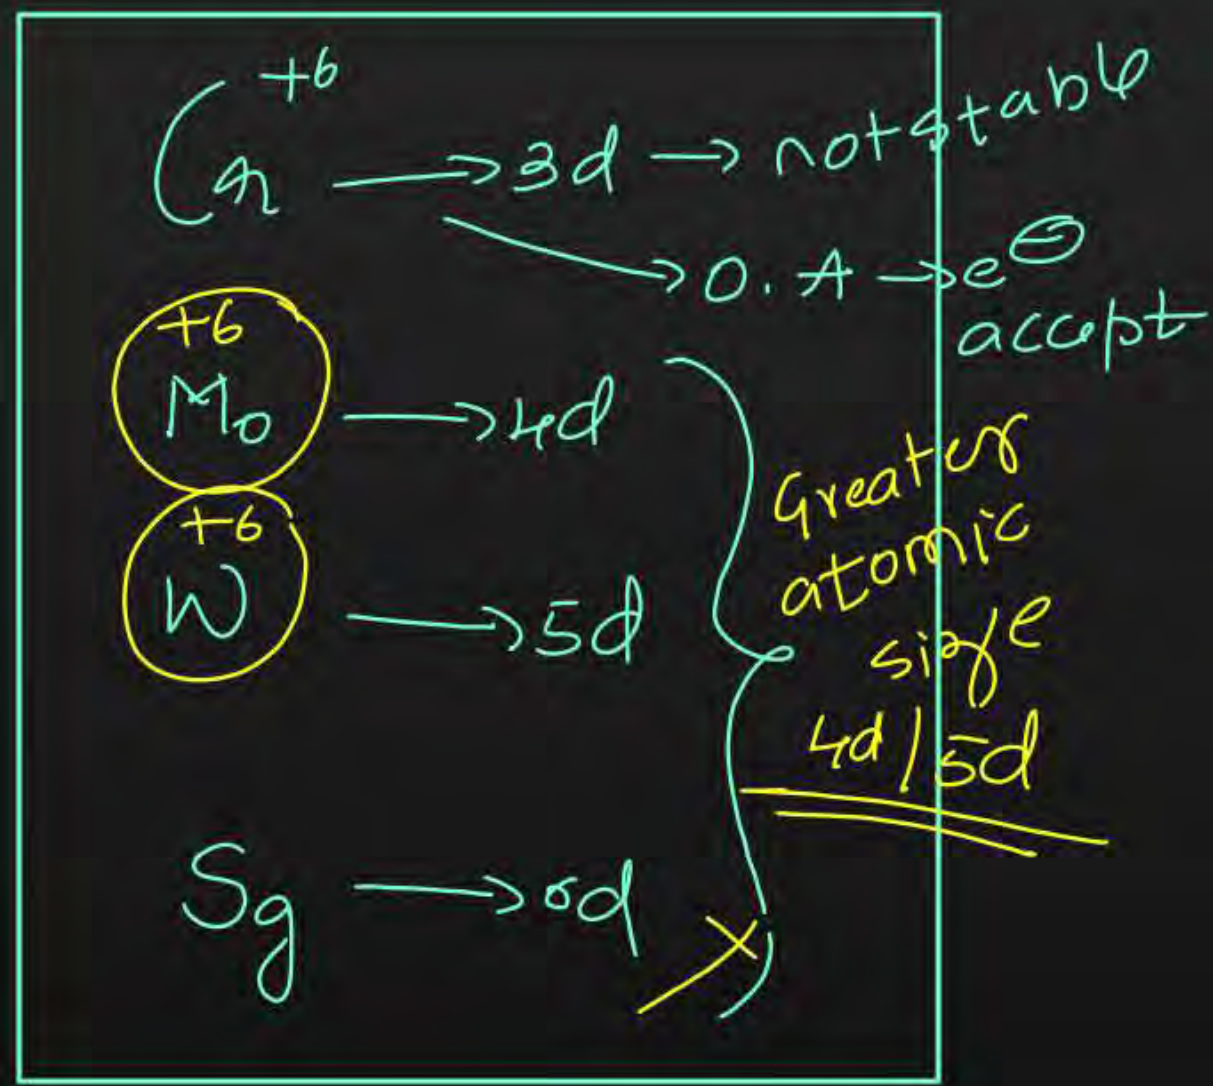 Cr +6 → 3d → not stable
→ O.A → e⊖ accept
+6
Mo → 4d
+6
W → 5d
Greater
atomic
size
4d/5d
Sg → 6d